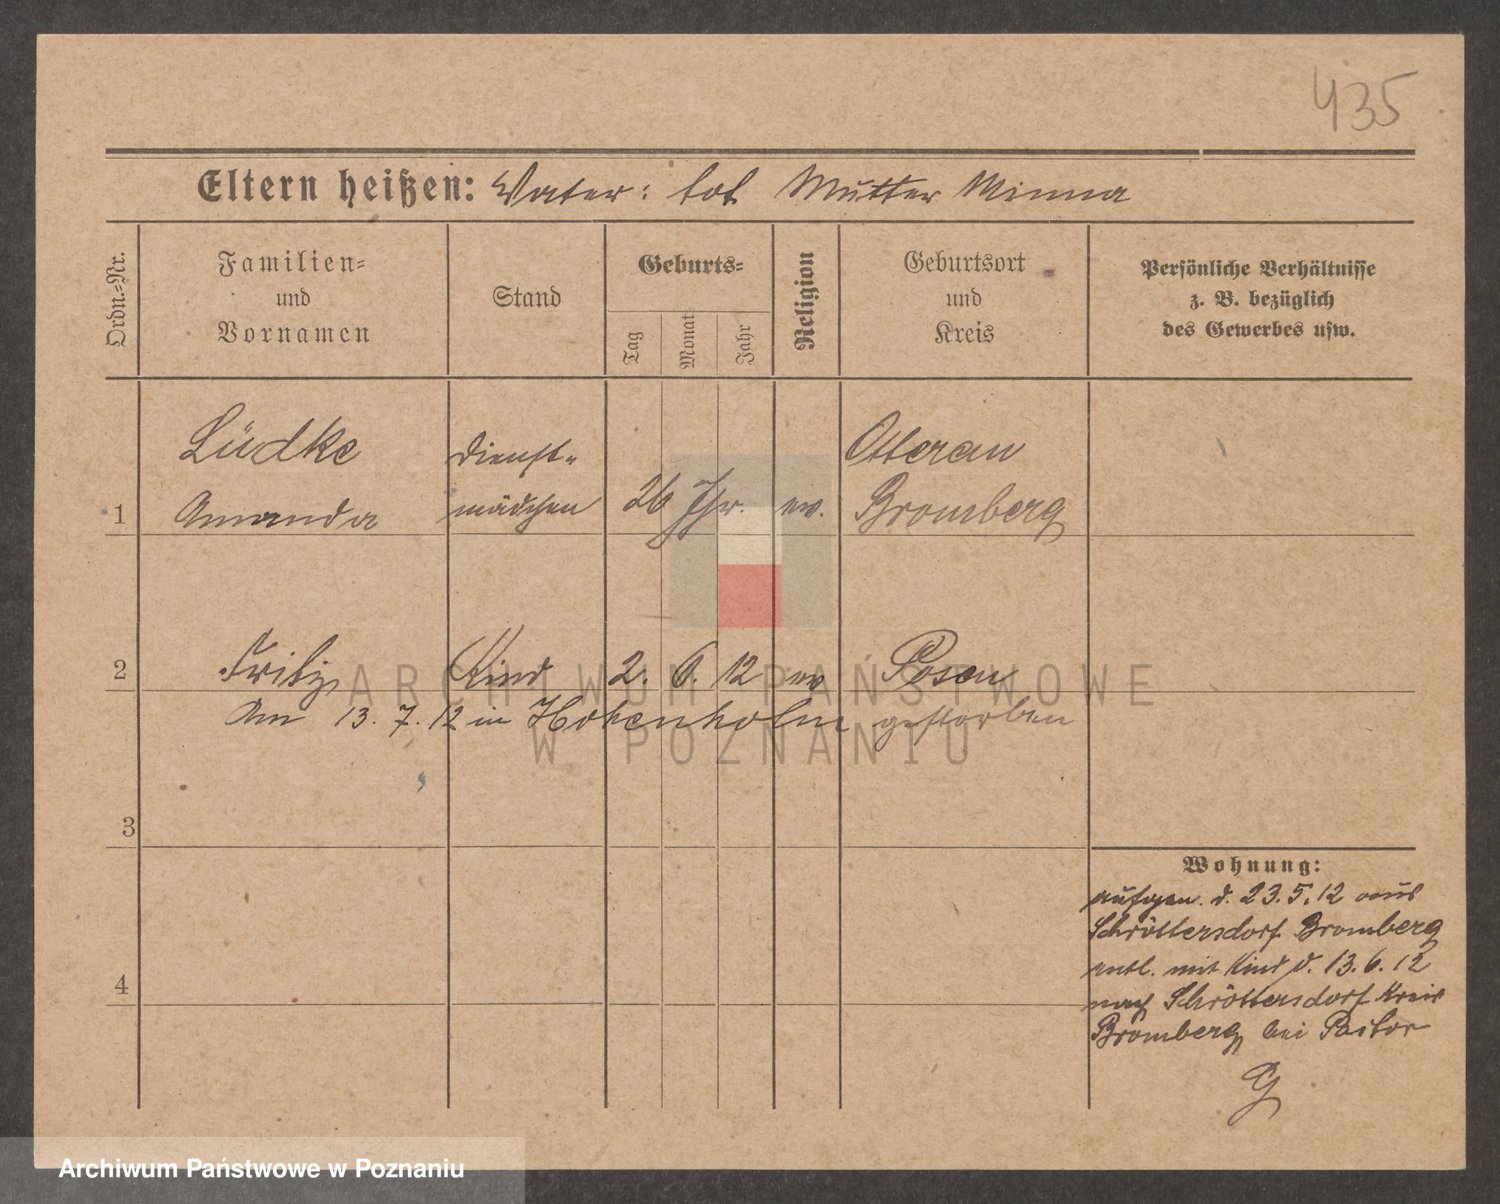 435
Eltern heißen: Vater: tot Mutter Minna
Ordn.-Nr.
Familien-
und
Vornamen
Stand
Geburts-
Tag
Monat
Jahr
Religion
Geburtsort
und
Kreis
Persönliche Verhältnisse
z. B. bezüglich
des Gewerbes usw.
Lüdke Dienst- Otterau
1 Amanda mädchen 26 Jhr. ev. Bromberg
2 Fritz Kind 2. 6. 12 ev Posen
Am 13. 7. 12 in Hohenholm gestorben
3
4
Wohnung:
aufgen. d. 23. 5. 12 aus
Schröttersdorf Bromberg
entl. mit Kind d. 13. 6. 12
nach Schröttersdorf Kreis
Bromberg bei Pastor
G
ARCHIWUM PAŃSTWOWE
W POZNANIU
Archiwum Państwowe w Poznaniu